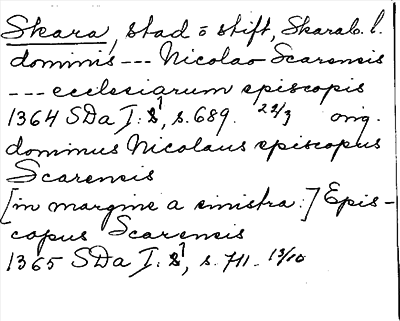 Skara, stad o stift, Skarab. l.
dominis --- Nicolao Scarensis
--- ecclesiarum episcopis
1364 SDa I. 1, s. 689. 22/3 orig.
dominus Nicolaus episcopus
Scarensis
[in margine a sinistra:] Epis-
copus Scarensis
1365 SDa I. 1, s. 711. 13/10